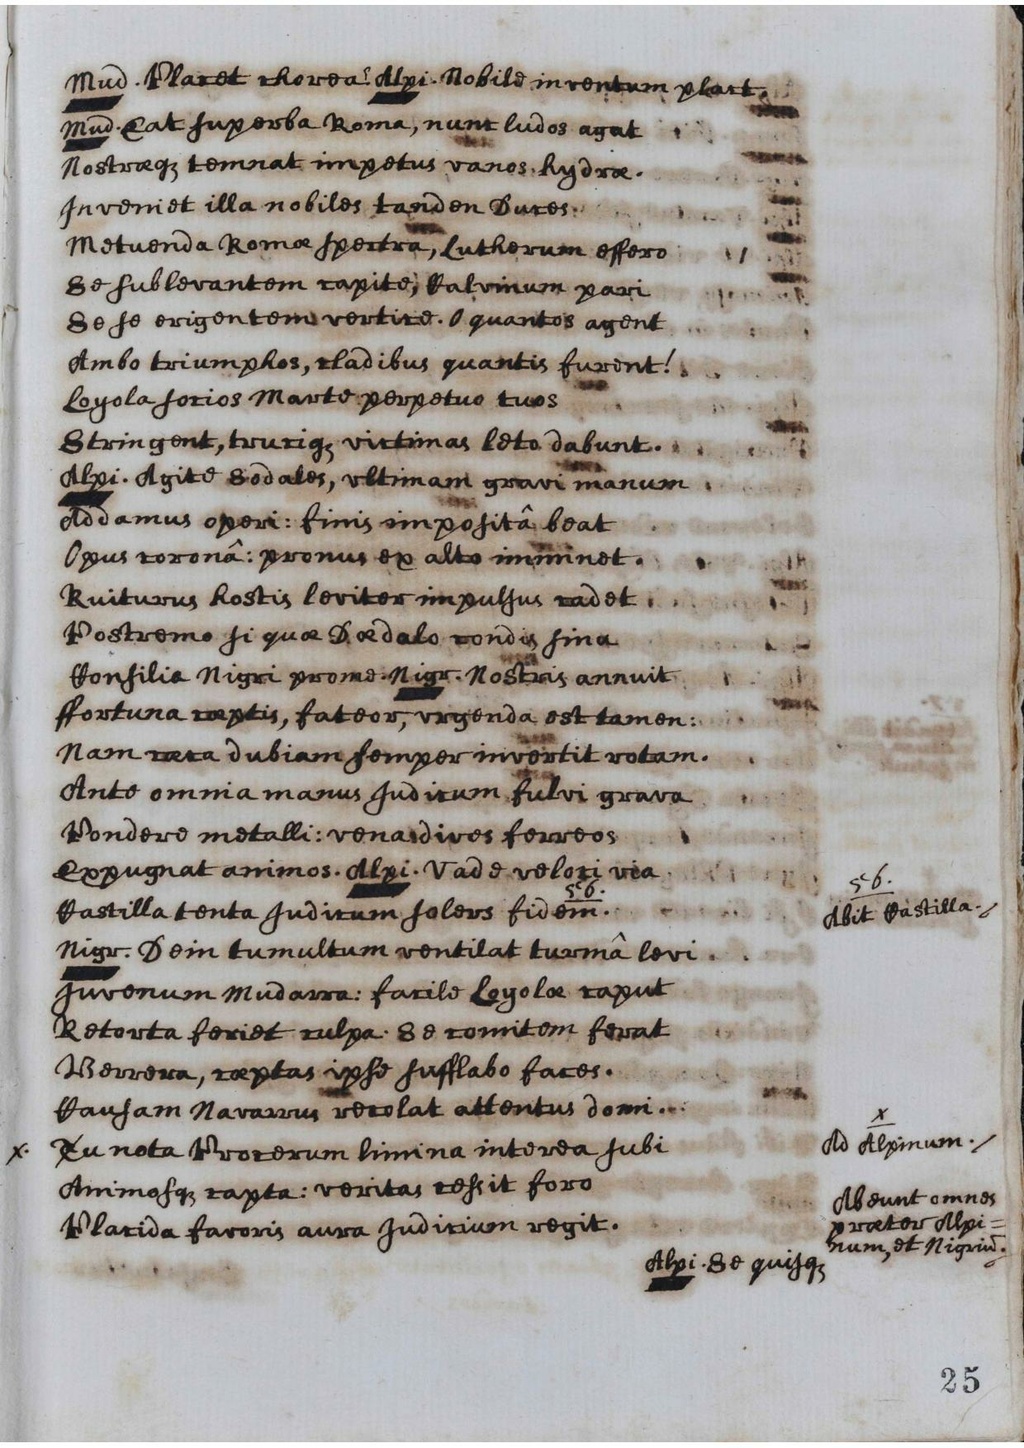 Mud. Placet chorea? Alpi. Nobile inventum placet.
Mud. Eat superba Roma, nunc ludos agat
Nostrasq; temnat impetus vanos hydræ.
Inveniet illa nobiles tanden Duces
Metuenda Romæ spectra, Lutherum effero
Se sublevantem capite, Calvinum pari
Se se erigentem vertice. O quantos agent
Ambo triumphos, cladibus quantis furent!
Loyola socios Marte perpetuo tuos
Stringent, truciq; victimas leto dabunt.
Alpi. Agite Sodales, ultimam gravi manum
Addamus operi: finis impositâ beat
Opus coronâ: pronus ex alto imminet.
Ruiturus hostis leviter impulsus cadet.
Postremo si quæ Dædalo condis sinu
Consilia Nigri prome. Nigr. Nostris annuit
ffortuna cæptis, fateor, urgenda est tamen:
Nam cæca dubiam semper invertit rotam.
Ante omnia manus Judicum fulvi grava
Pondere metalli: vena dives ferreos
Expugnat animos. Alpi. Vade veloci via
56.
Castilla tenta Judicum solers fidem.
56.
Abit Castilla.
Nigr. Dein tumultum ventilat turmâ levi
Juvenum Mudarra: facile Loyolæ caput
Retorta feriet culpa. Se comitem ferat
Herrera, cæptas ipse sufflabo faces.
Causam Navarrus recolat attentus domi.
x. Tu nota Procerum limina interea subi
x
Ad Alpinum.
Animosq; capta: veritas cessit foro
Placida favoris aura Judicium regit.
Abeunt omnes
præter Alpi=
num, et Nigriū.
Alpi. Se quisq;
25